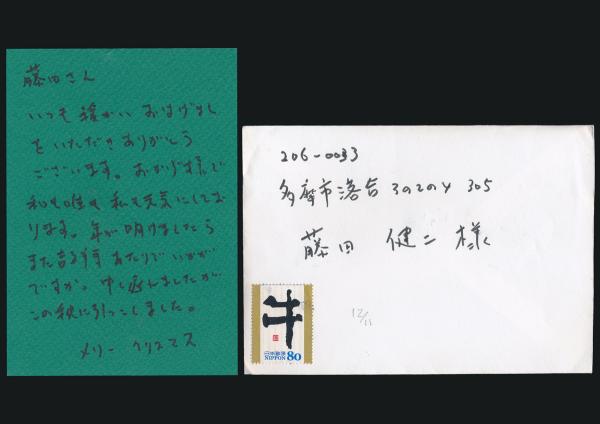 藤田さん
いつも暖かい おはげまし
をいただき ありがとう
ございます。おかげ様で
私も元気にしてお
ります。年が明けましたら
また吉祥寺あたりでいかが
ですか。申し遅れましたが
この秋に引っこしました。
メリー クリスマス
206-0033
多摩市落合3の2の4 305
藤田 健二 様
牛
日本郵便
NIPPON 80
12/11